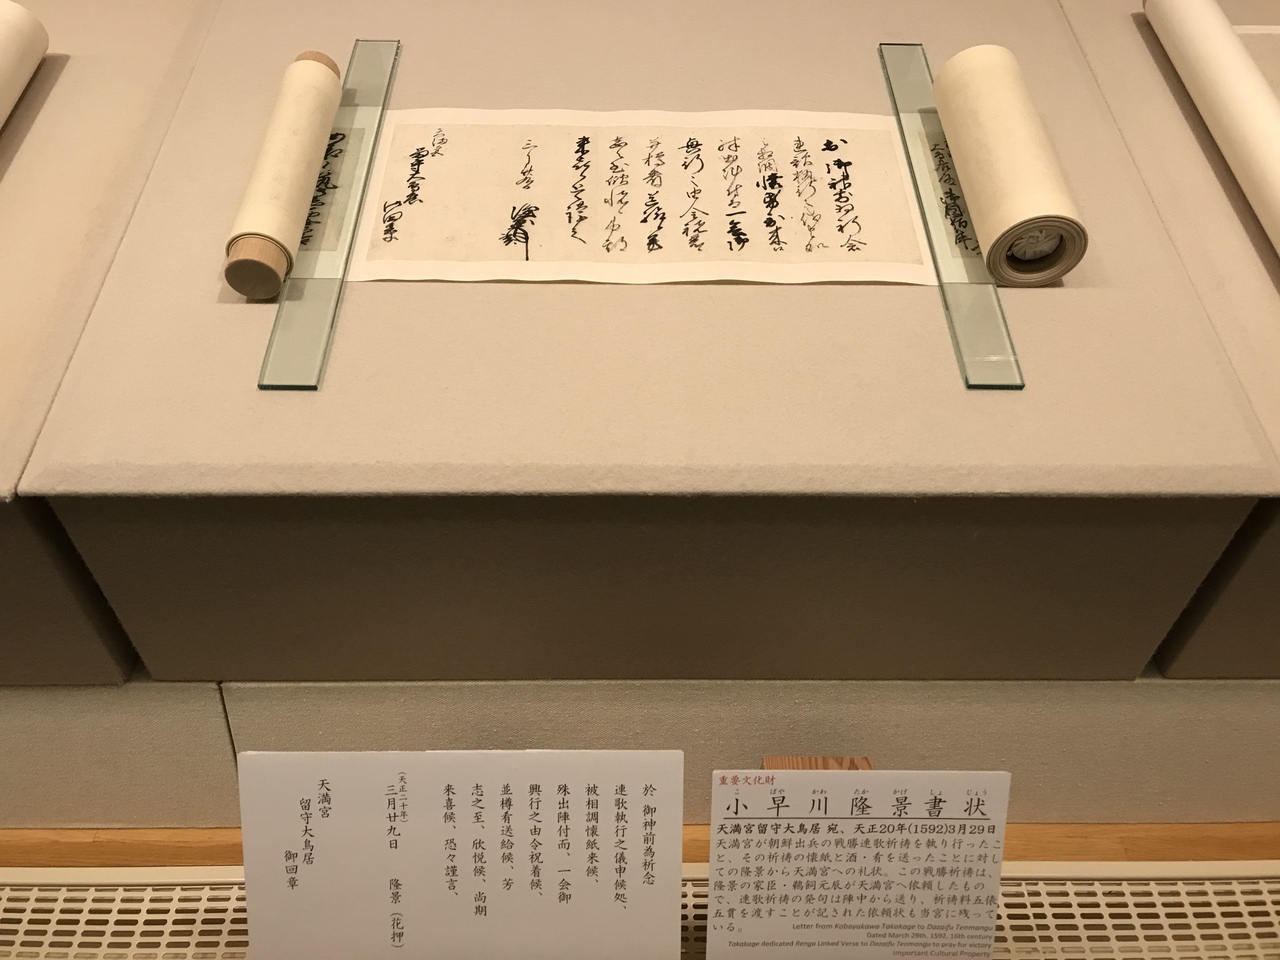 於 御神前為祈念
連歌執行之儀申候処、
被相調懐紙来候、
殊出陣付而、一会御
興行之由令祝着候、
並樽肴送給候、芳
志之至、欣悦候、尚期
来喜候、恐々謹言、
(天正二十年)
三月廿九日 隆景(花押)
天満宮
留守大鳥居
御回章
重要文化財
こ ばや かわ たか かげ しょ じょう
小早川隆景書状
天満宮留守大鳥居 宛、天正20年(1592)3月29日
天満宮が朝鮮出兵の戦勝連歌祈祷を執り行ったこ
と、その祈祷の懐紙と酒・肴を送ったことに対し
ての隆景から天満宮への礼状。この戦勝祈祷は、
隆景の家臣・鵜飼元辰が天満宮へ依頼したもの
で、連歌祈祷の発句は陣中から送り、祈祷料五俵
五貫を渡すことが記された依頼状も当宮に残って
いる。
Letter from Kobayakawa Takakage to Dazaifu Tenmangu
Dated March 29th, 1592, 16th century
Takakage dedicated Renga Linked Verse to Dazaifu Tenmangu to pray for victory
Important Cultural Property